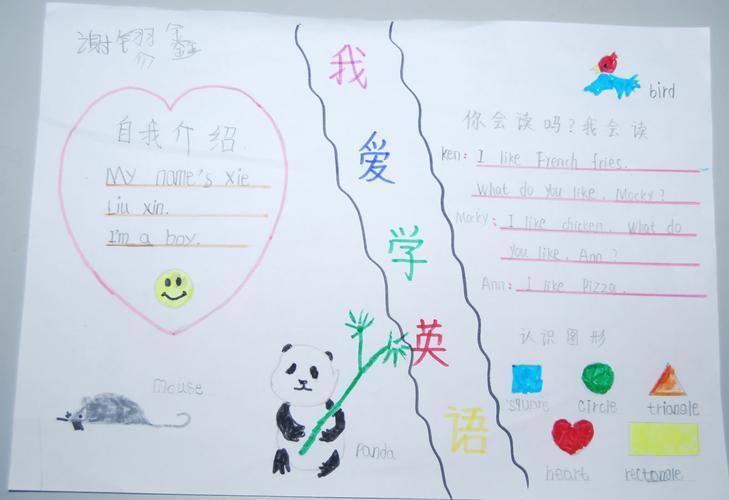 谢镏鑫
自我介绍
My name's Xie
Liu xin.
I'm a boy.
mouse
panda
我
爱
学
英
语
bird
你会读吗?我会读
Ken: I like French fries.
What do you like, Mocky?
Mocky: I like chicken. What do
you like, Ann?
Ann: I like Pizza.
认识图形
square
circle
triangle
heart
rectangle